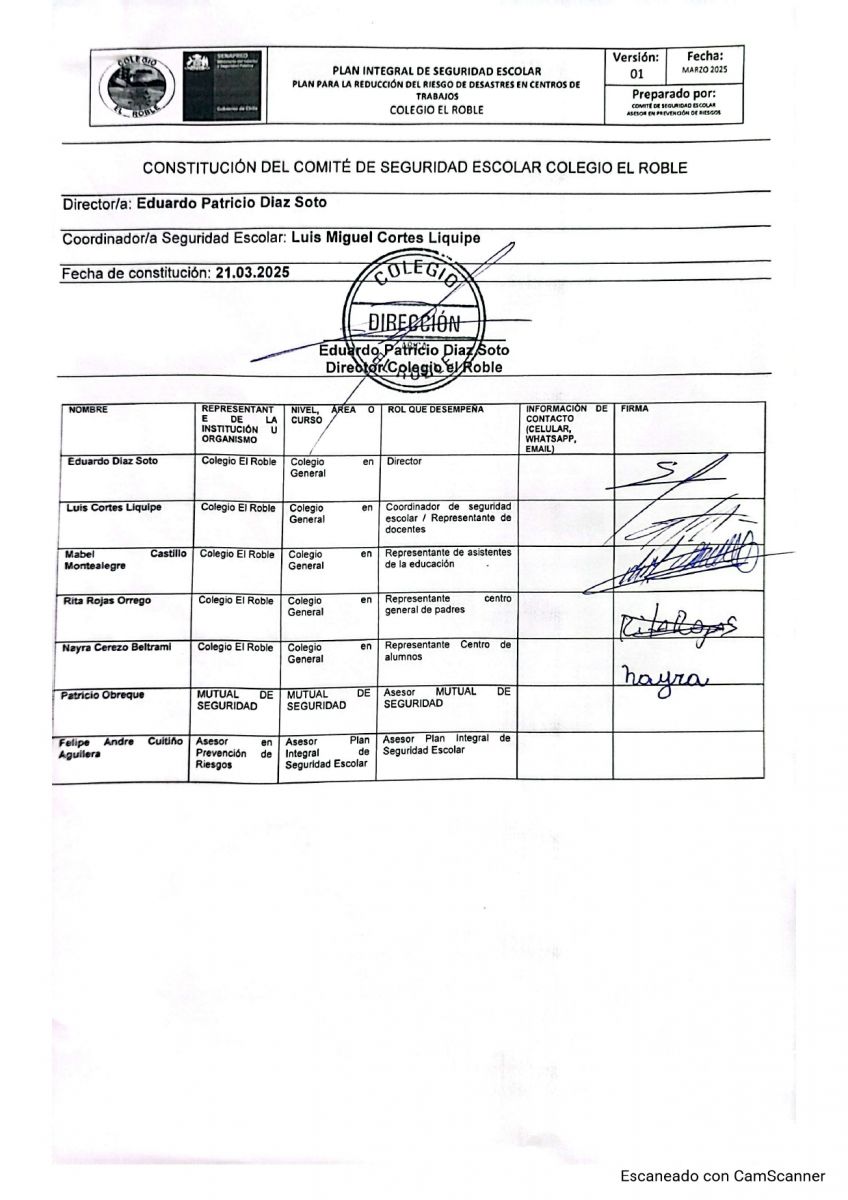 COLEGIO
EL ROBLE
SENAPRED
Gobierno de Chile
PLAN INTEGRAL DE SEGURIDAD ESCOLAR
PLAN PARA LA REDUCCIÓN DEL RIESGO DE DESASTRES EN CENTROS DE
TRABAJOS
COLEGIO EL ROBLE
Versión:
01
Fecha:
MARZO 2025
Preparado por:
COMITÉ DE SEGURIDAD ESCOLAR
ASESOR EN PREVENCIÓN DE RIESGOS
CONSTITUCIÓN DEL COMITÉ DE SEGURIDAD ESCOLAR COLEGIO EL ROBLE
Director/a: Eduardo Patricio Diaz Soto
Coordinador/a Seguridad Escolar: Luis Miguel Cortes Liquipe
Fecha de constitución: 21.03.2025
COLEGIO
DIRECCIÓN
Eduardo Patricio Diaz Soto
Director Colegio el Roble
NOMBRE
REPRESENTANT
E DE LA
INSTITUCIÓN U
ORGANISMO
NIVEL, ÁREA O
CURSO
ROL QUE DESEMPEÑA
INFORMACIÓN DE
CONTACTO
(CELULAR,
WHATSAPP,
EMAIL)
FIRMA
Eduardo Diaz Soto
Colegio El Roble
Colegio en
General
Director
Luis Cortes Liquipe
Colegio El Roble
Colegio en
General
Coordinador de seguridad
escolar / Representante de
docentes
Mabel Castillo
Montealegre
Colegio El Roble
Colegio en
General
Representante de asistentes
de la educación
Rita Rojas Orrego
Colegio El Roble
Colegio en
General
Representante centro
general de padres
Rita Rojas
Nayra Cerezo Beltrami
Colegio El Roble
Colegio en
General
Representante Centro de
alumnos
Nayra
Patricio Obreque
MUTUAL DE
SEGURIDAD
MUTUAL DE
SEGURIDAD
Asesor MUTUAL DE
SEGURIDAD
Felipe Andre Cuitiño
Aguilera
Asesor en
Prevención de
Riesgos
Asesor Plan
Integral de
Seguridad Escolar
Asesor Plan Integral de
Seguridad Escolar
Escaneado con CamScanner